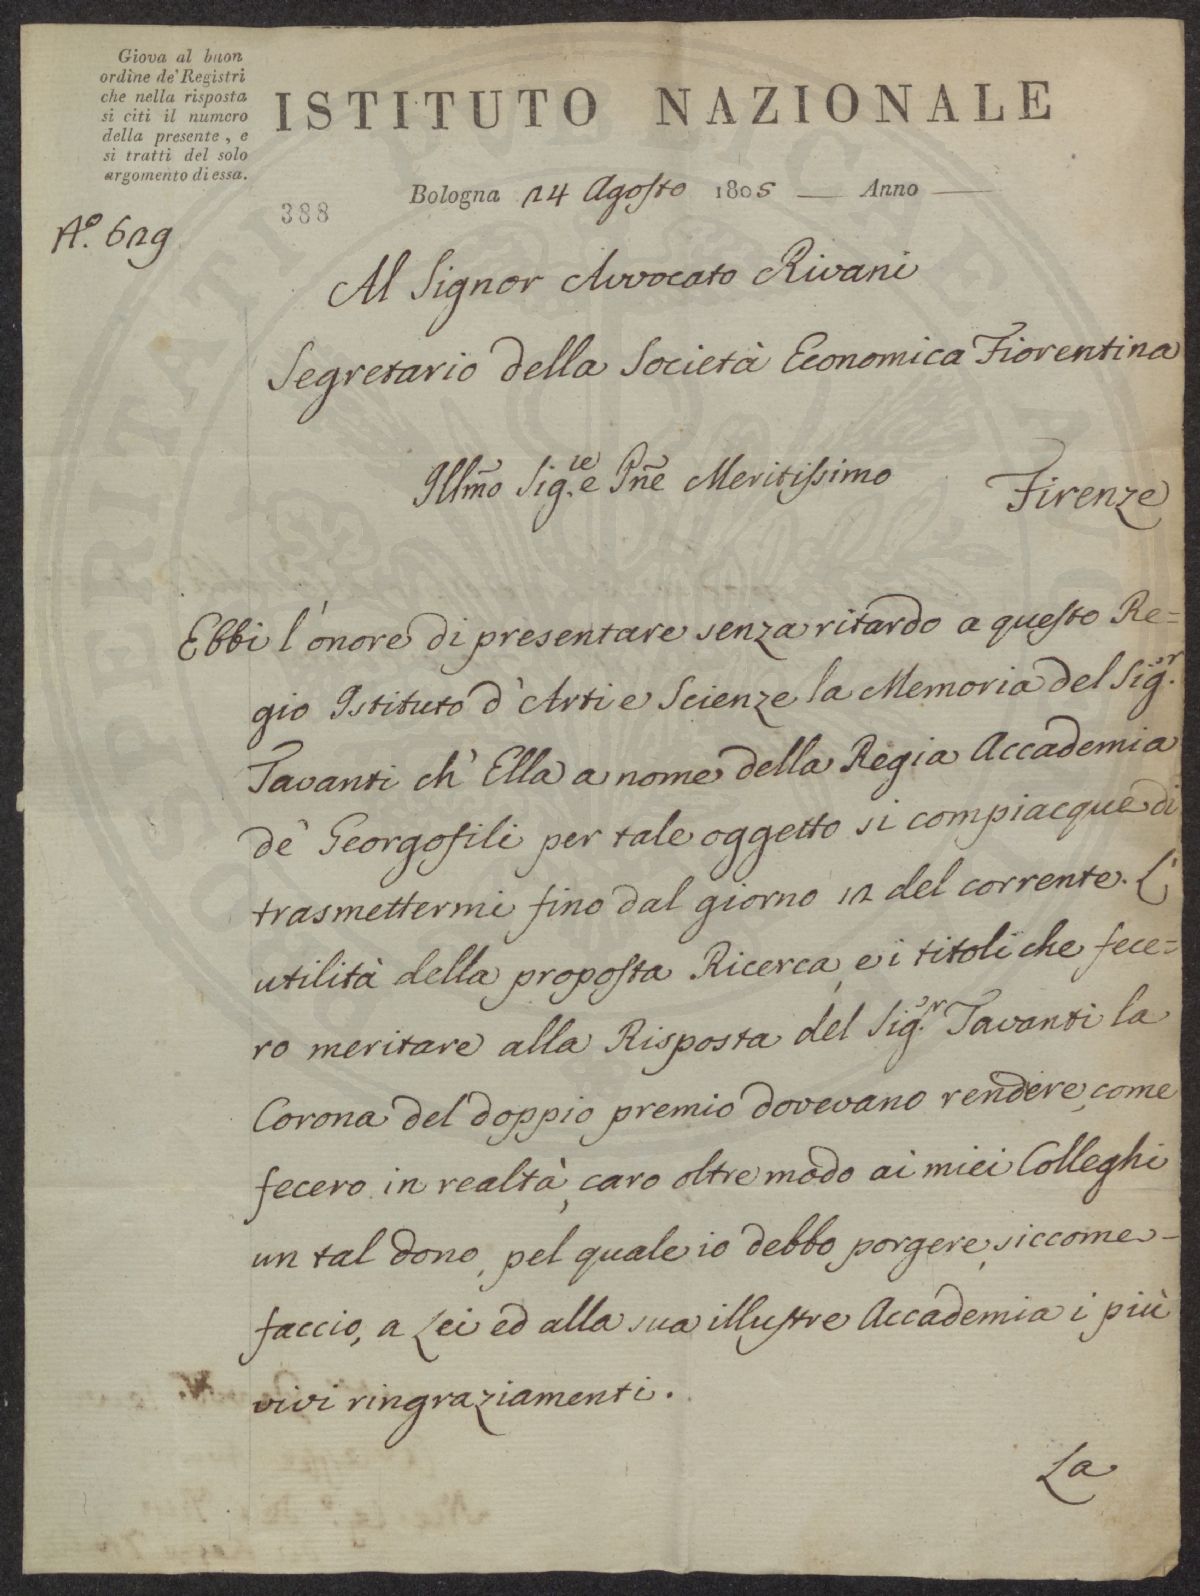 Giova al buon
ordine de' Registri
che nella risposta
si citi il numero
della presente, e
si tratti del solo
argomento di essa.
ISTITUTO NAZIONALE
Bologna 24 Agosto 1805 — Anno —
388
A.º 629
Al Signor Avvocato Rivani
Segretario della Società Economica Fiorentina
Illm̃o Sig.re Pñe Meritissimo
Firenze
Ebbi l'onore di presentare senza ritardo a questo Re=
gio Istituto d'Arti e Scienze la Memoria del Sig.r
Tavanti ch'Ella a nome della Regia Accademia
de' Georgofili per tale oggetto si compiacque di
trasmettermi fino dal giorno 12 del corrente. L'
utilità della proposta Ricerca, e i titoli che fece=
ro meritare alla Risposta del Sig.r Tavanti la
Corona del doppio premio dovevano rendere, come
fecero in realtà, caro oltre modo ai miei Colleghi
un tal dono, pel quale io debbo porgere, siccome
faccio, a Lei ed alla sua illustre Accademia i più
vivi ringraziamenti.
La